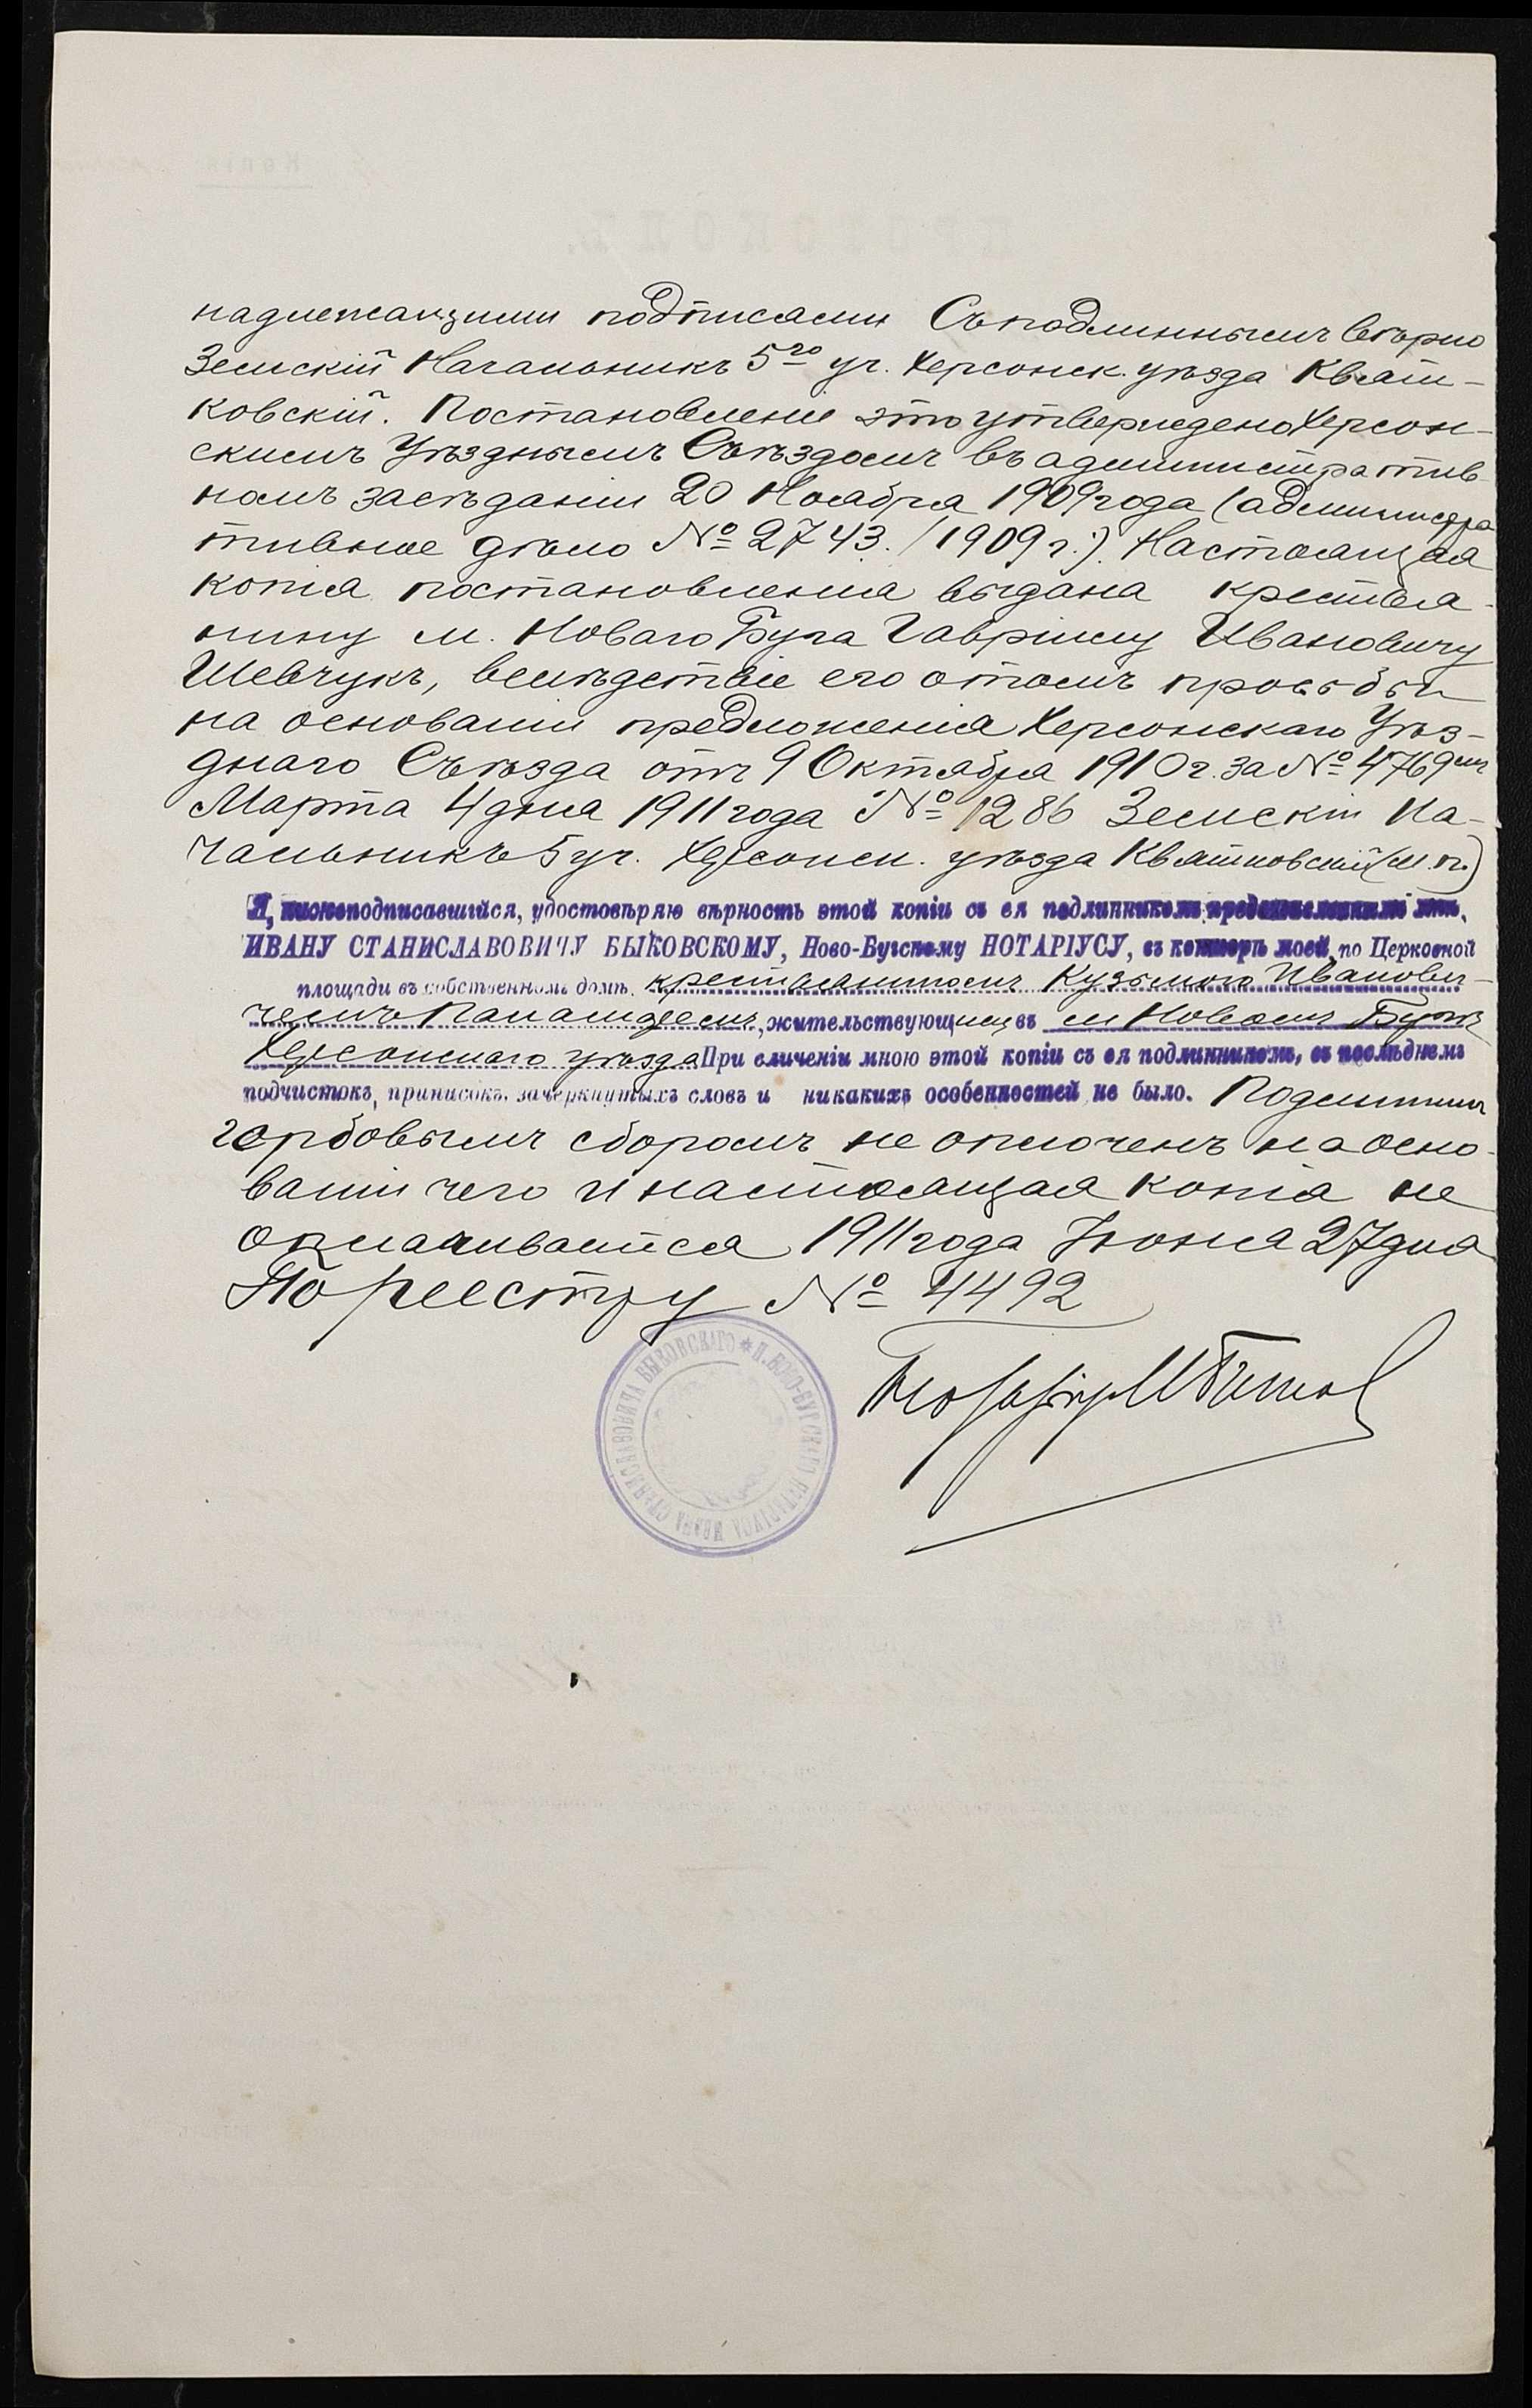 надлежащими подписами Съ подлиннымъ вѣрно
Земскій Начальникъ 5го уч. Херсонск. уѣзда Квят-
ковскій. Постановленіе это утверждено Херсон-
скимъ Уѣзднымъ Съѣздомъ въ административ-
номъ засѣданіи 20 Ноября 1909 года (администра
тивное дѣло № 2743./1909 г.). Настоящая
копія постановленія выдана крестья-
нину м. Новаго Буга Гавріилу Ивановичу
Шевчукъ, вслѣдствіе его о томъ просьбы
на основаніи предложенія Херсонскаго Уѣз-
днаго Съѣзда отъ 9 Октября 1910 г. за № 4769
Марта 4 дня 1911 года № 1286 Земскій На-
чальникъ 5 уч. Херсонск. уѣзда Квятковскій (м.п.)
Я, нижеподписавшійся, удостовѣряю вѣрность этой копіи съ ея подлинникомъ представленнымъ мнѣ,
ИВАНУ СТАНИСЛАВОВИЧУ БЫКОВСКОМУ, Ново-Бугскому НОТАРІУСУ, въ конторѣ моей, по Церковной
площади въ собственномъ домѣ, крестьяниномъ Кузьмою Иванови-
чемъ, жительствующимъ въ м Новомъ Бугѣ
Херсонскаго уѣзда При сличеніи мною этой копіи съ ея подлинникомъ, въ послѣднемъ
подчистокъ, приписокъ, зачеркнутыхъ словъ и никакихъ особенностей не было. Подлинникъ
гербовымъ сборомъ не оплоченъ на осно-
ваніи чего и настоящая копія не
оплачивается 1911 года Іюня 27 дня
По реестру № 4492
Нотаріусъ
* Н. НОВО-БУГСКАГО НОТАРІУСА ИВАНА СТАНИСЛАВОВИЧА БЫКОВСКАГО